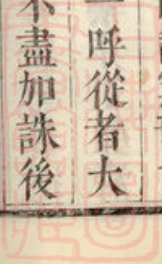 呼從者大
不盡加誅後